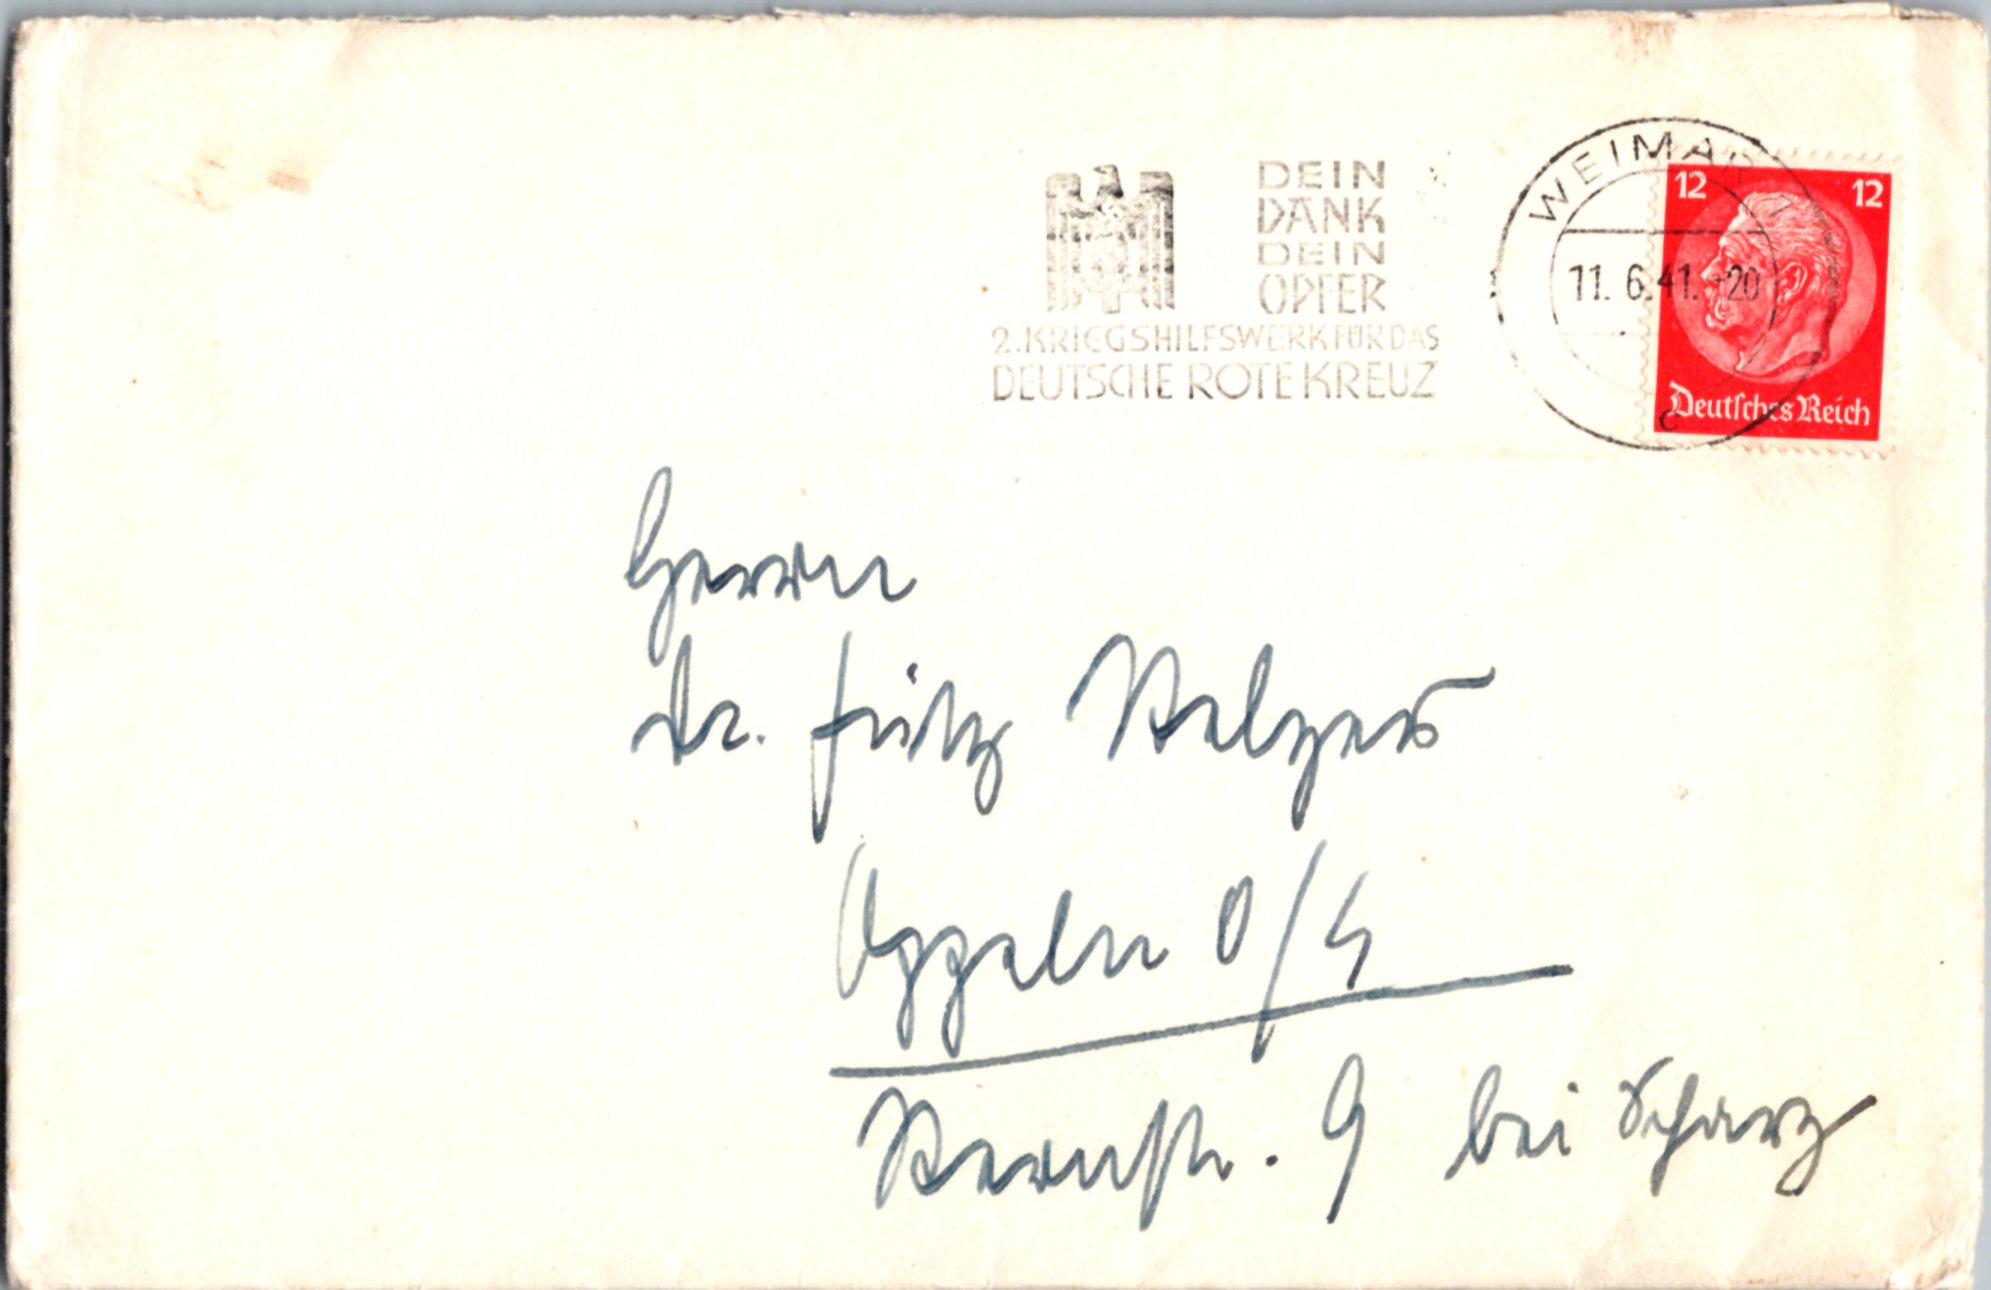 DEIN
DANK
DEIN
OPFER
2. KRIEGSHILFSWERK FÜR DAS
DEUTSCHE ROTE KREUZ
WEIMAR 1
11. 6. 41. -20
c
12 12
Deutsches Reich
Herrn
Dr. Fritz Stelzer
Oppeln O/S
Sternstr. 9 bei Scharz